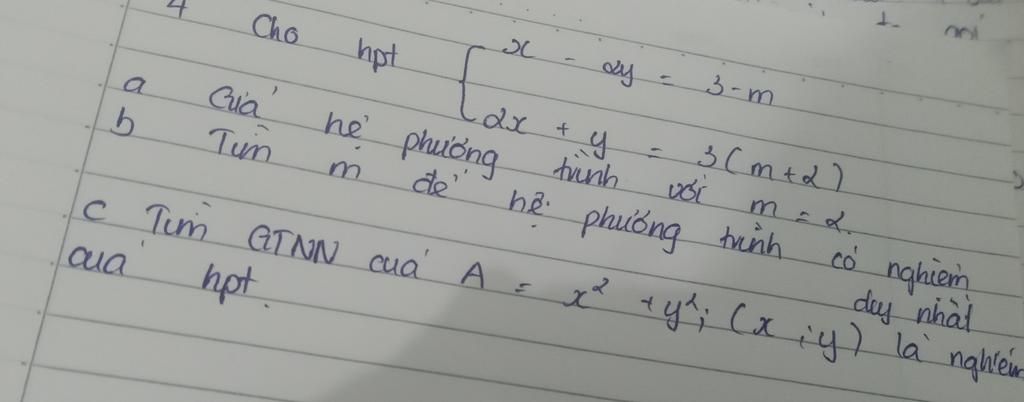 4 Cho hpt { x - 2y = 3 - m
2x + y = 3(m+2)
a Giải hệ phương trình với m = 2.
b Tìm m để hệ phương trình có nghiệm duy nhất
c Tìm GTNN của A = x² + y²; (x ; y) là nghiệm
của hpt.